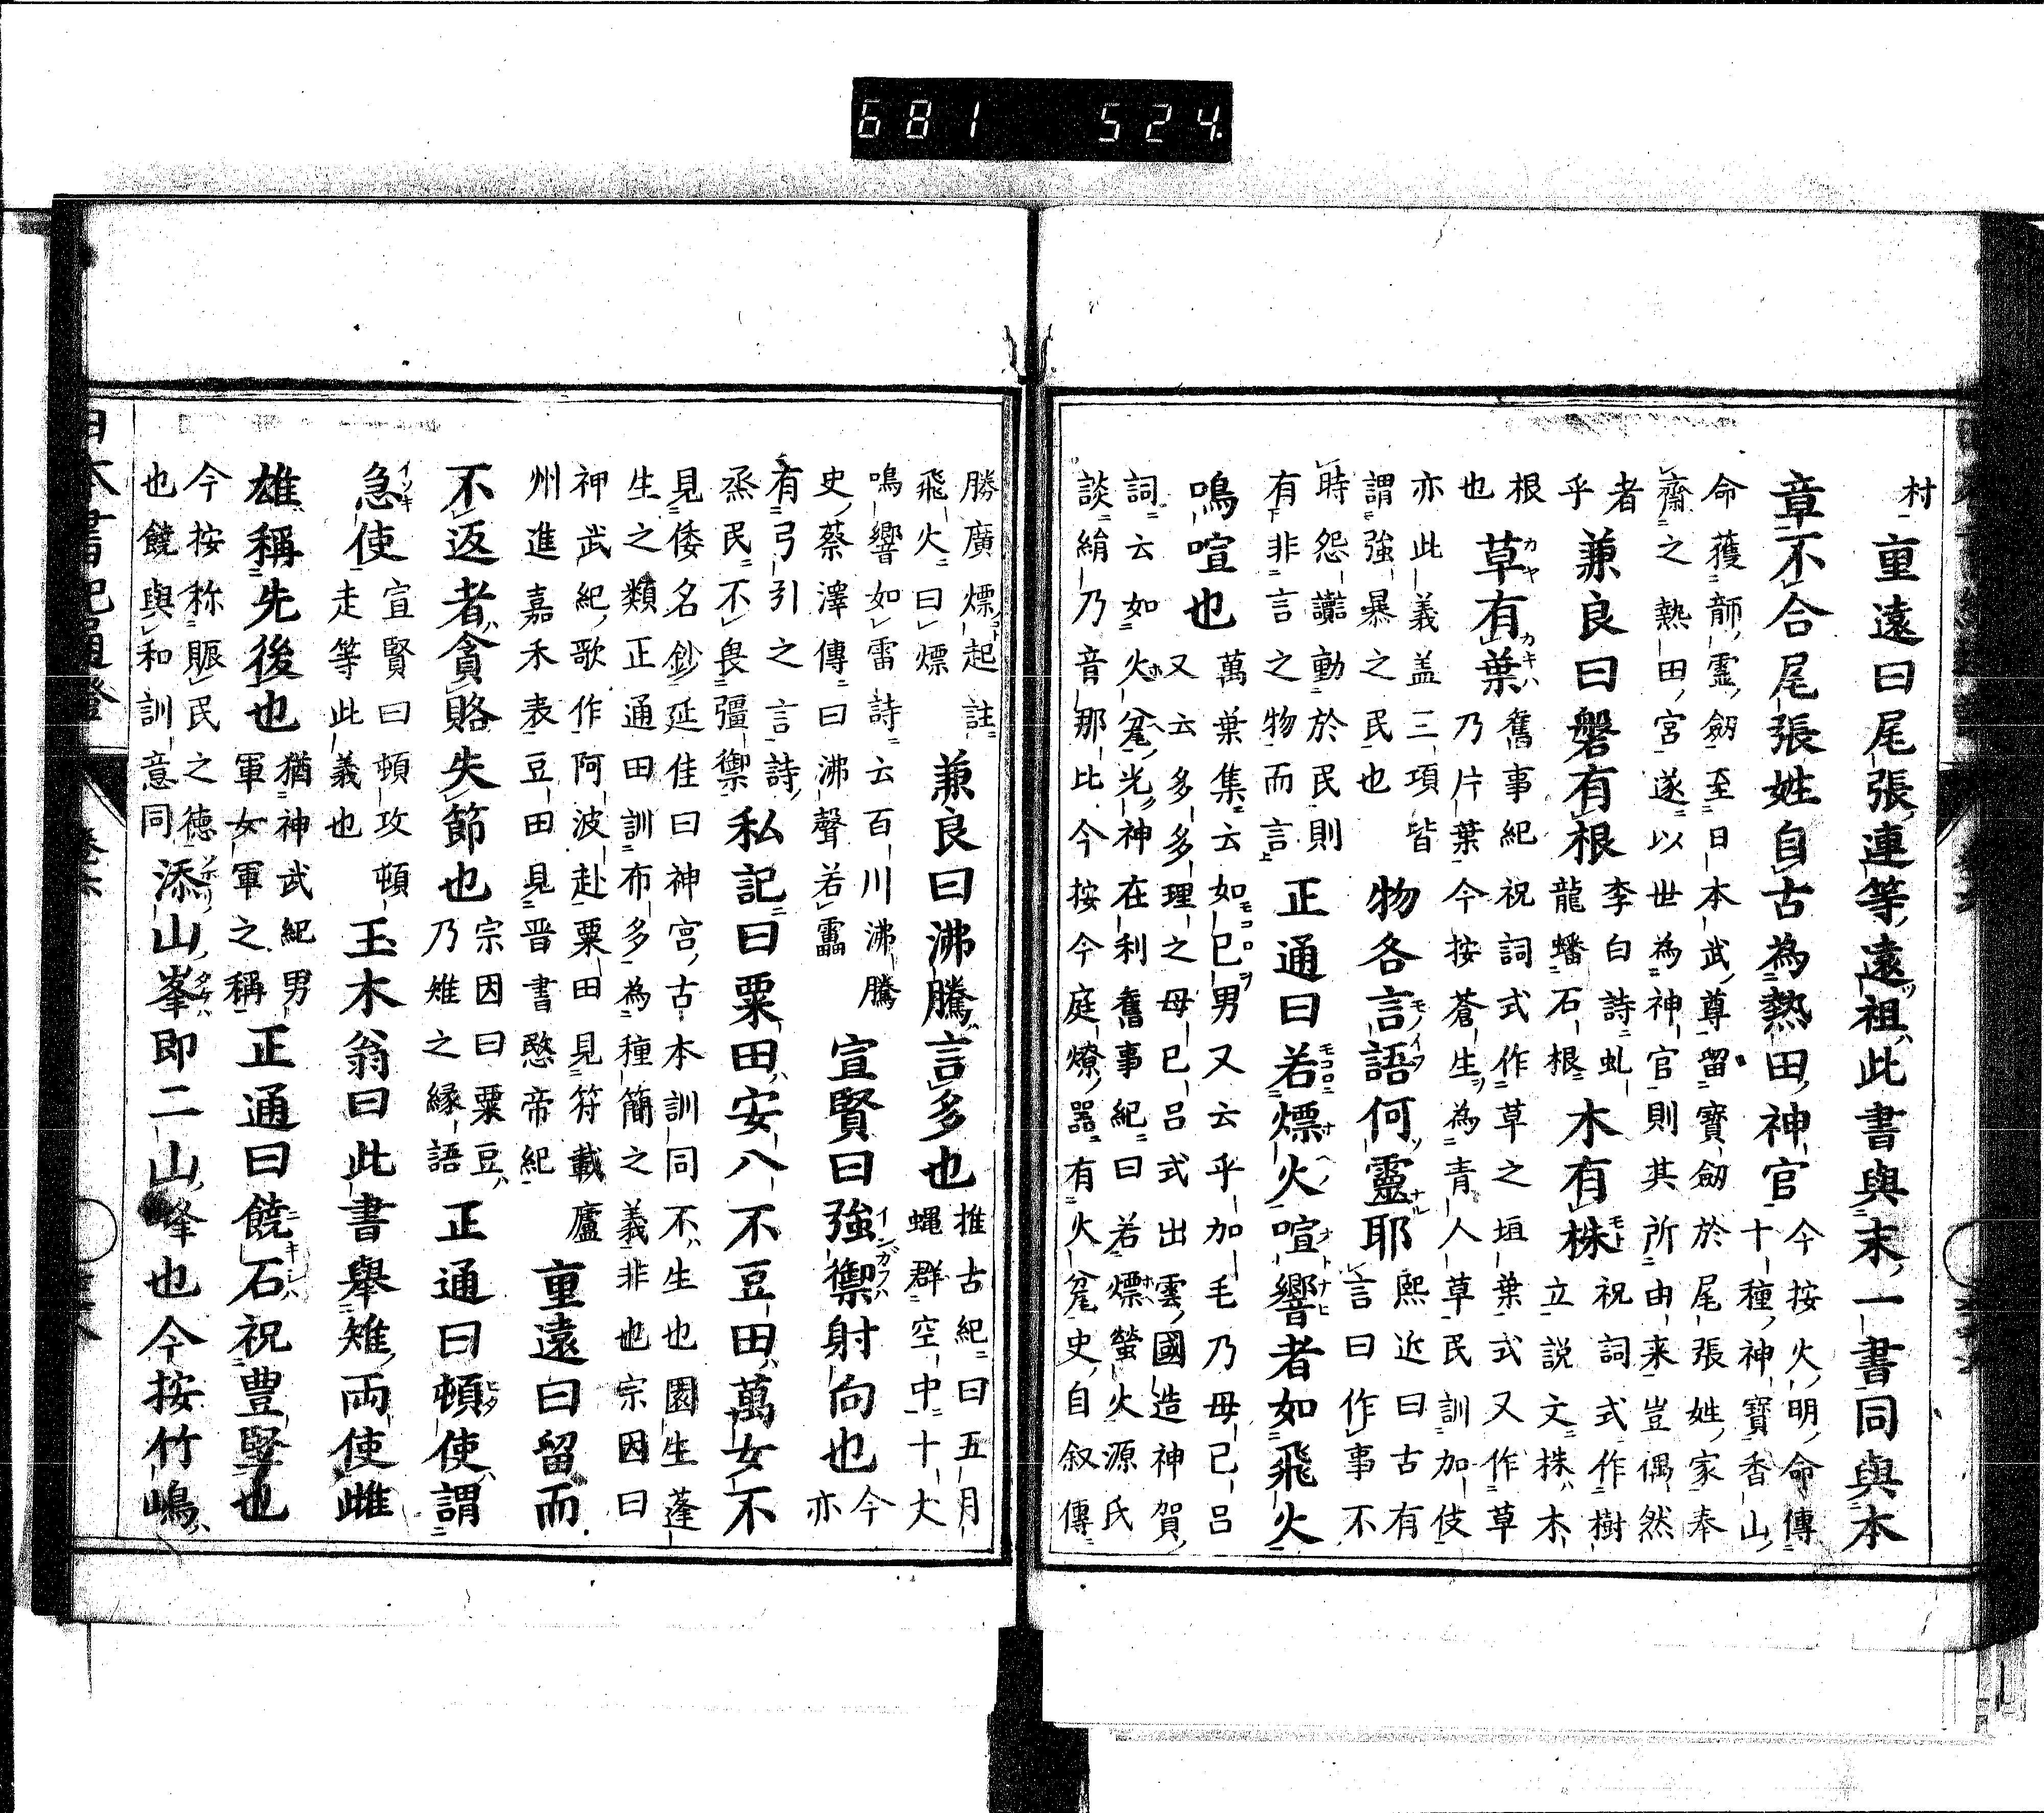 村
重遠曰尾張連等遠祖此書與末一書同與本
章不合尾張姓自古為熱田神官
今按火明命傳
十種神寶香山
命獲韴靈劔至日本武尊留寶劔於尾張姓家奉
齋之熱田宮遂以世為神官則其所由来豈偶然
者
乎
兼良曰磐有根
李白詩虬
龍蟠石根
木有株
祝詞式作樹
立説文株木
根
也
草有葉
舊事紀祝詞式作草之垣葉式又作草
乃片葉今按蒼生為青人草民訓加伎
亦此義盖三項皆
謂強暴之民也
物各言語何靈耶
熙近曰古有
言曰作事不
時怨讟動於民則
有非言之物而言
正通曰若熛火喧響者如飛火
鳴喧也
萬葉集云如巳男又云乎加毛乃母已呂
又云多多理之母已呂式出雲國造神賀
詞云如火瓮光神在利舊事紀曰若熛螢火源氏
談絹乃音那比今按今庭燎器有火瓮史自叙傳
勝廣熛起註
飛火曰熛
兼良曰沸騰言多也
推古紀曰五月
蝿群空中十大
鳴響如雷詩云百川沸騰
史蔡澤傳曰沸聲若靁
宣賢曰強禦射向也
今
亦
有弓引之言詩
烝民不畏彊禦
私記曰粟田安八不豆田萬女不
見倭名鈔延佳曰神宮古本訓同不生也園生蓬
生之類正通田訓布多為種簡之義非也宗因曰
神武紀歌作阿波赴粟田見符載廬
州進嘉禾表豆田見晋書愍帝紀
重遠曰留而
不返者貪賂失節也
宗因曰粟豆
乃雉之縁語
正通曰頓使謂
急使
宣賢曰頓攻頓
走等此義也
玉木翁曰此書舉雉両使雌
雄稱先後也
猶神武紀男
軍女軍之稱
正通曰饒石祝豊堅也
今按称賑民之徳
也饒與和訓意同
添山峯即二山峰也今按竹嶋
日本書紀通證
681 524